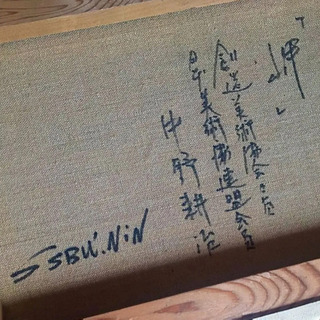 「岬」
創造美術協会会員
日本美術家連盟会員
中野耕治